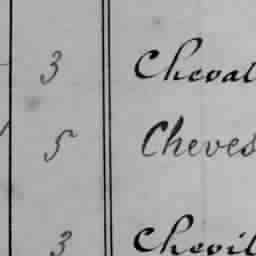 3 Cheval
5 Cheves
3 Chevil